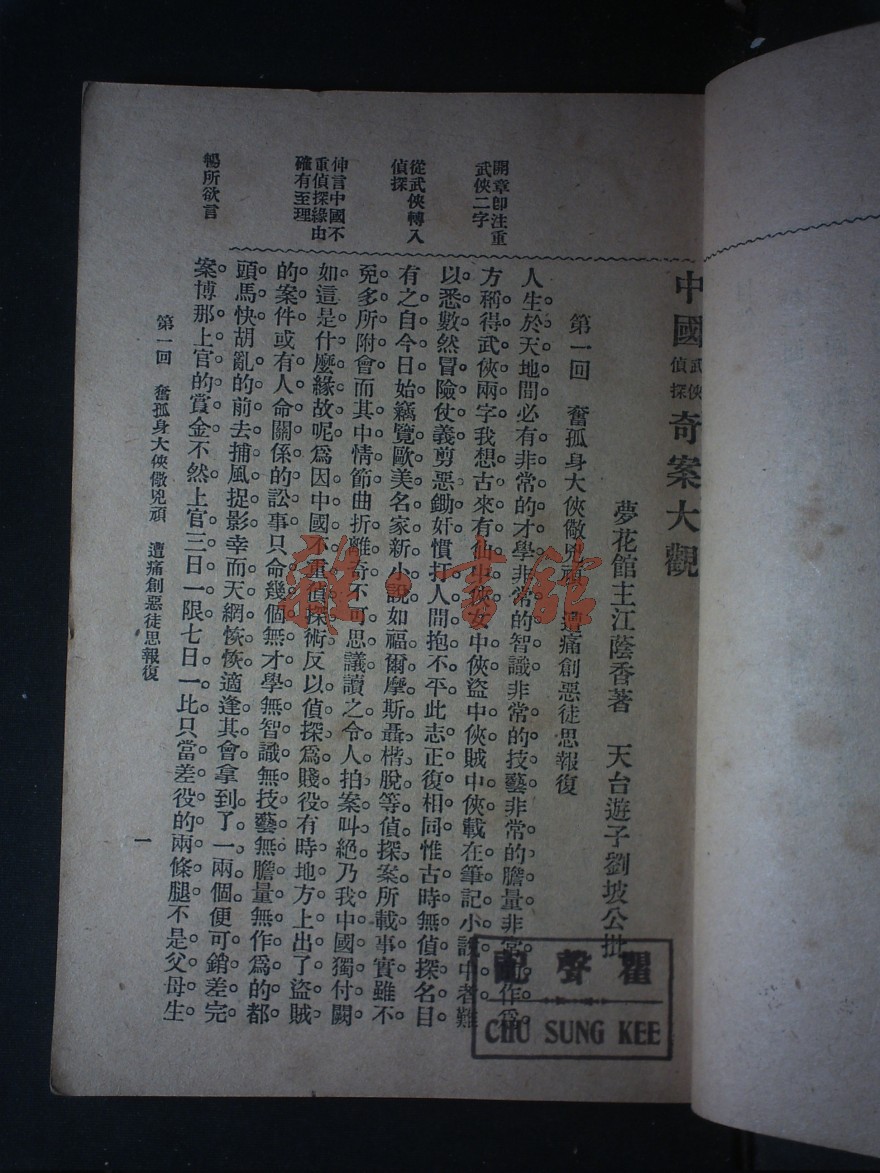 中國武俠偵探奇案大觀
夢花館主江蔭香著 天台遊子劉坡公批
第一回 奮孤身大俠儆兇頑 遭痛創惡徒思報復
開章卽注重
武俠二字
從武俠轉入
偵探
伸言中國不
重偵探緣由
確有至理
暢所欲言
人生於天地間必有非常的才學非常的智識非常的技藝非常的膽量非常的作爲
方稱得武俠兩字我想古來有仙中俠女中俠盜中俠賊中俠載在筆記小說中者難
以悉數然冒險仗義剪惡鋤奸慣打人間抱不平此志正復相同惟古時無偵探名目
有之自今日始竊覽歐美名家新小說如福爾摩斯聶楷脫等偵探案所載事實雖不
免多所附會而其中情節曲折離奇不可思議讀之令人拍案叫絕乃我中國獨付闕
如這是什麼緣故呢爲因中國不重偵探術反以偵探爲賤役有時地方上出了盜賊
的案件或有人命關係的訟事只命幾個無才學無智識無技藝無膽量無作爲的都
頭馬快胡亂的前去捕風捉影幸而天網恢恢適逢其會拿到了一兩個便可銷差完
案博那上官的賞金不然上官三日一限七日一比只當差役的兩條腿不是父母生
第一回 奮孤身大俠儆兇頑 遭痛創惡徒思報復
一
瞿聲記
CHU SUNG KEE
雜·書館